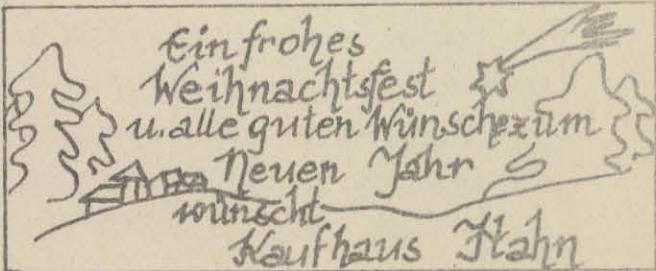 Ein frohes
Weihnachtsfest
u. alle guten Wünsche zum
Neuen Jahr
wünscht
Kaufhaus Hahn